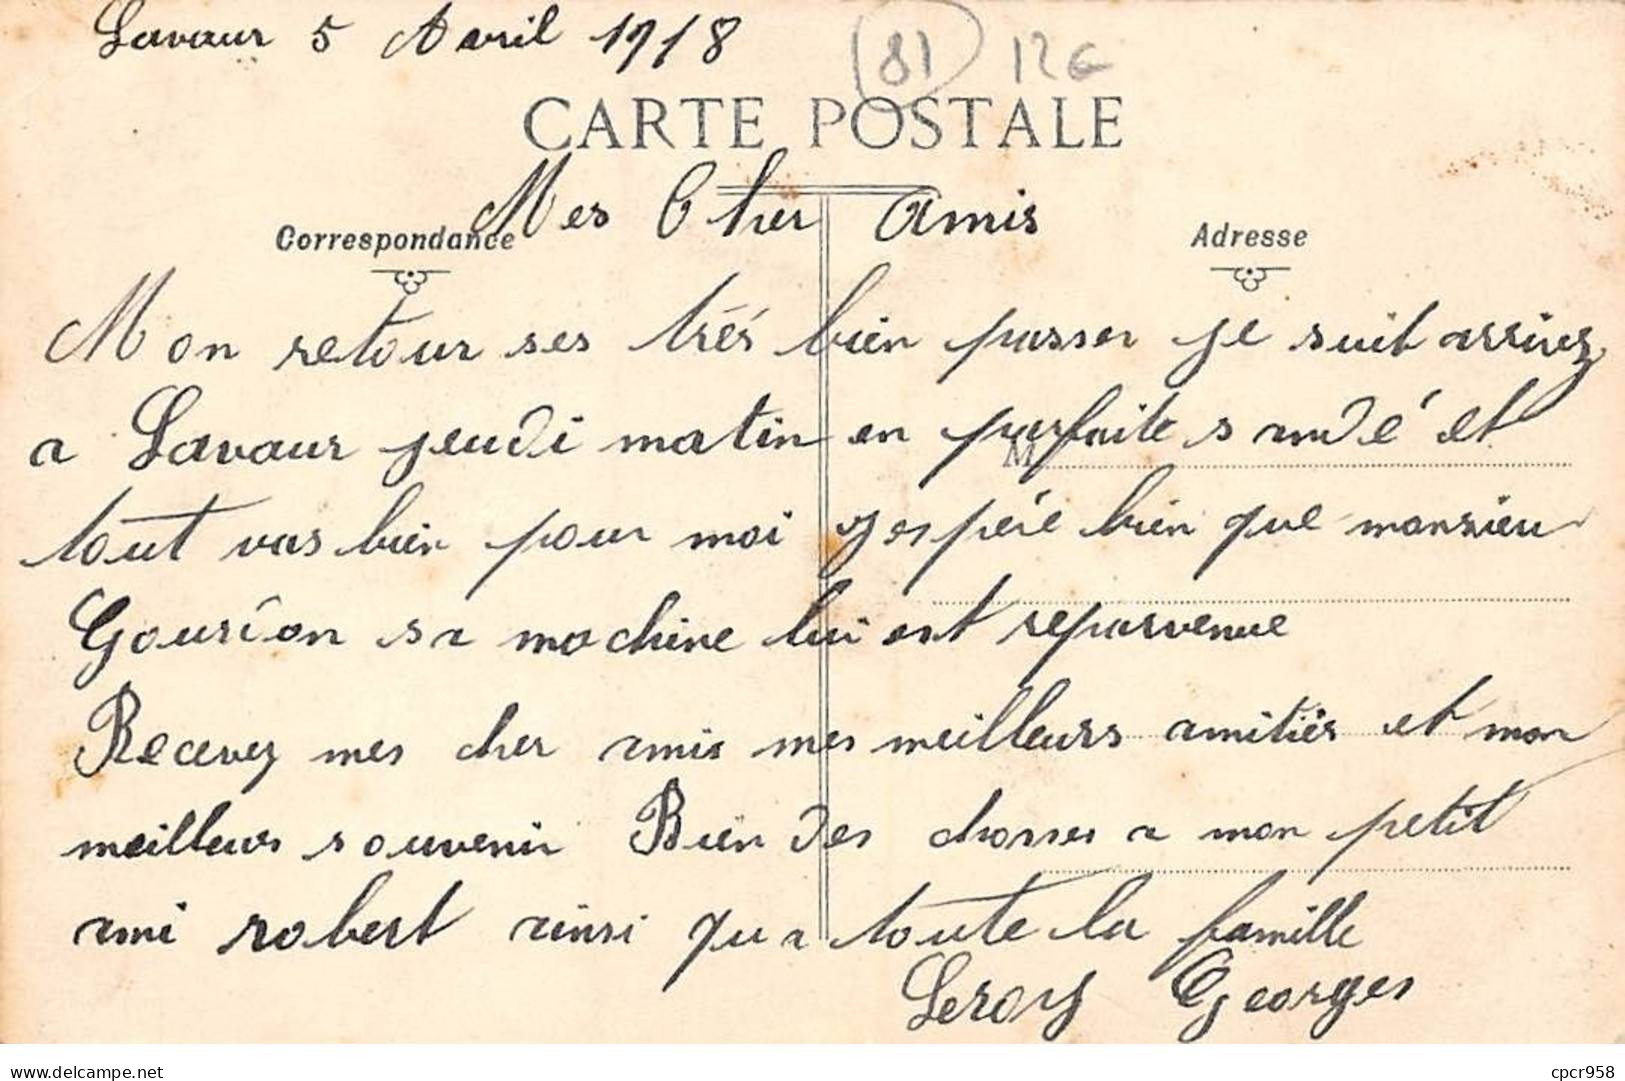 Lavaur 5 Avril 1918
81 12€
CARTE POSTALE
Mes Cher Amis
Correspondance
Adresse
Mon retour ses très bien passer je suit arrivez
a Lavaur jeudi matin en parfaite sandé et
M
tout vas bien pour moi jespére bien que monsieu
Gourion sa machine lui est reparvenue
Recevez mes cher amis mes meilleurs amitiés et mon
meilleurs souvenir Bien des chosses a mon petit
ami robert ainsi qua toute la famille
Leroy Georges
delcampe.net
cpcr958